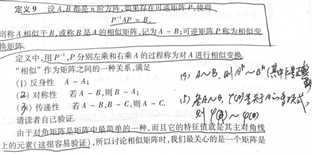 定义 9 设 A,B 都是 n 阶方阵, 如果存在可逆矩阵 P, 使得
P⁻¹AP = B,
则称 A 相似于 B, 或称 B 是 A 的相似矩阵, 记为 A~B. 可逆矩阵 P 称为相似变
换矩阵.
定义中, 用 P⁻¹, P 分别左乘和右乘 A 的过程称为对 A 进行相似变换.
“相似”作为矩阵之间的一种关系, 满足
(1) 反身性 A~A.
(2) 对称性 若 A~B, 则 B~A.
(3) 传递性 若 A~B, B~C, 则 A~C.
请读者自己验证.
由于对角矩阵是矩阵中最简单的一种, 而且它的特征值就是其主对角线
上的元素(这很容易验证), 所以讨论相似矩阵时, 我们最关心的是一个矩阵是
(4) A~B, 则
(5) 若 A~B,
则 φ(A)~φ(B)